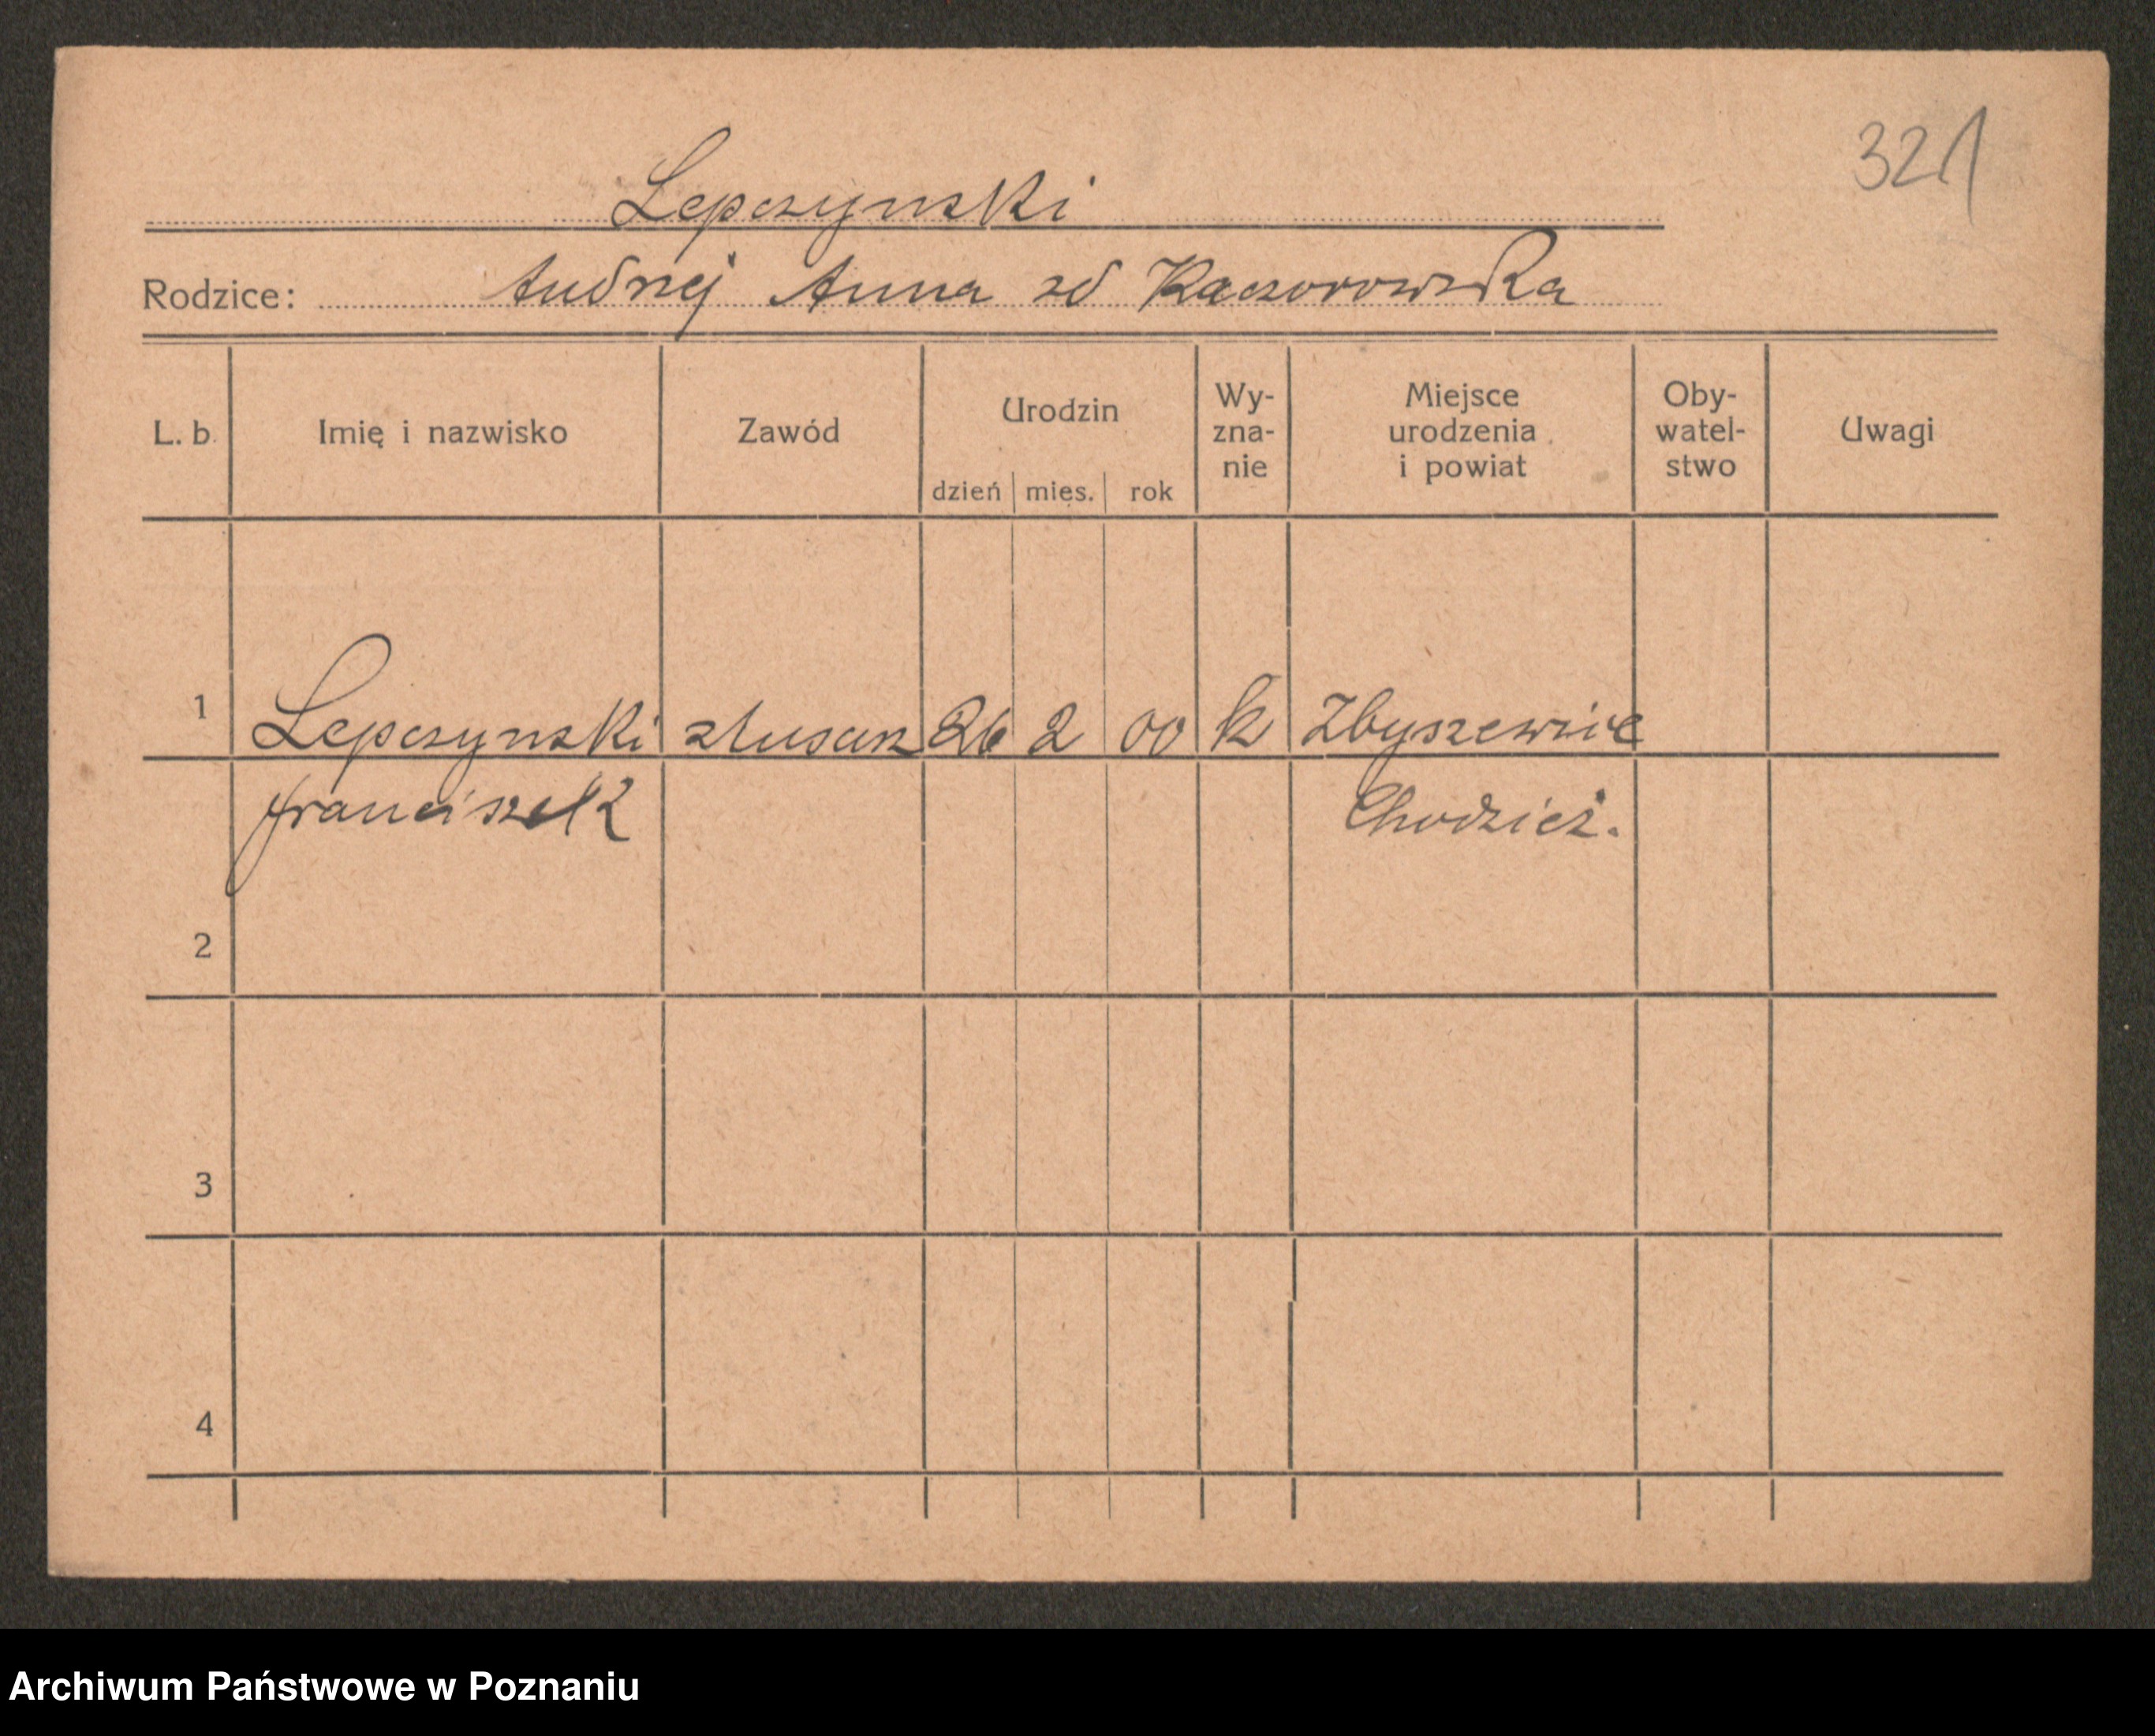 321
Lepczynski
Rodzice: Andrzej Anna zd Kaczorowska
L. b. Imię i nazwisko Zawód Urodzin dzień mies. rok Wy-zna-nie Miejsce urodzenia i powiat Oby-watel-stwo Uwagi
1 Lepczynski 26 2 00 k Zbyszewice
franciszek Chodzież.
2
3
4
Archiwum Państwowe w Poznaniu